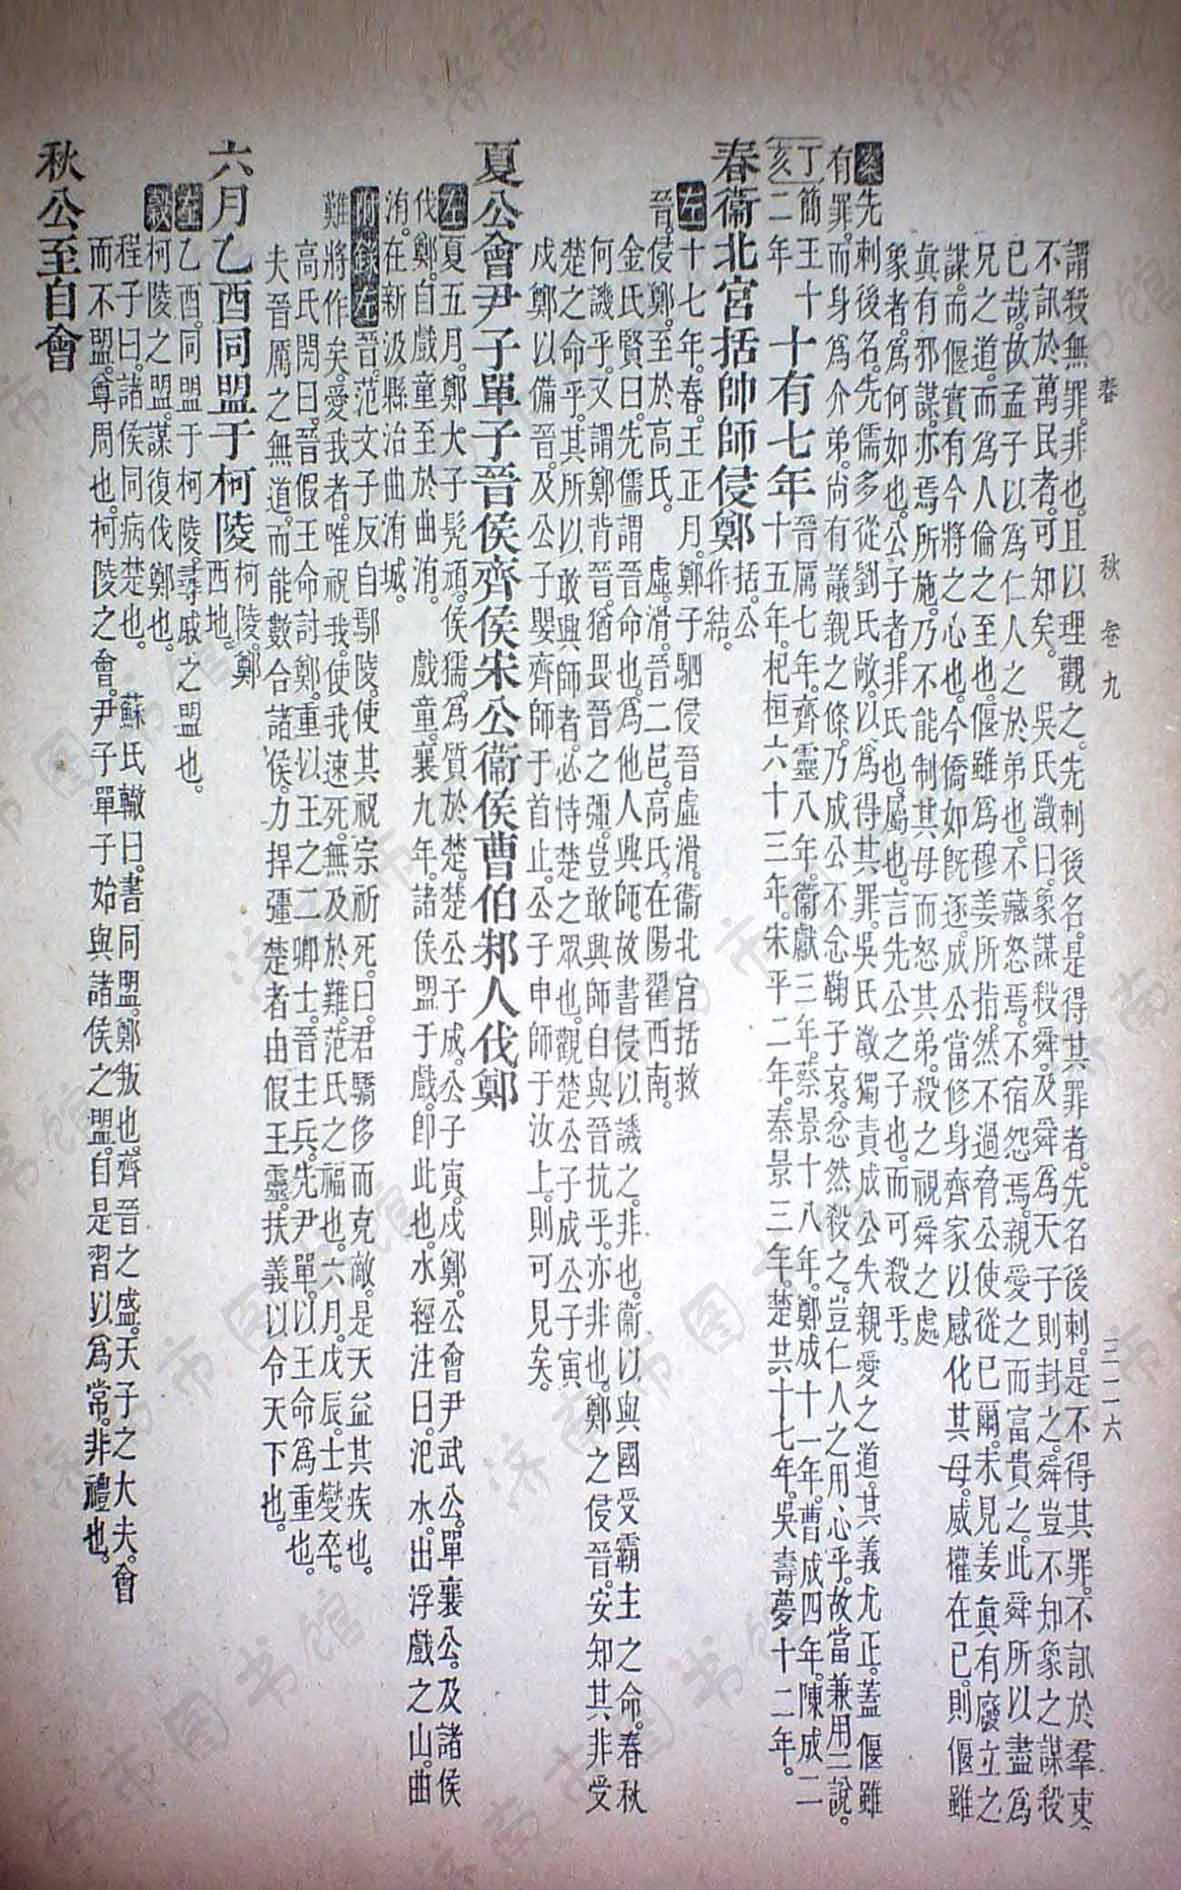 春　秋　卷九　三二六
謂殺無罪。非也。且以理觀之。先刺後名。是得其罪者。先名後刺。是不得其罪。不訊於羣吏。
不訊於萬民者。可知矣。　吳氏澂曰。象謀殺舜。及舜爲天子則封之。舜豈不知象之謀殺
已哉。故孟子以爲仁人之於弟也。不藏怒焉。不宿怨焉。親愛之而富貴之。此舜所以盡爲
兄之道。而爲人倫之至也。偃雖爲穆姜所指。然不過脅公使從已爾。未見姜眞有廢立之
謀。而偃實有今將之心也。今僑如旣逐。成公當修身齊家以感化其母。威權在已。則偃雖
眞有邪謀。亦焉所施。乃不能制其母而怒其弟。殺之視舜之處
象者。爲何如也。公子者。非氏也。屬也。言先公之子也。而可殺乎。
案先刺後名。先儒多從劉氏敞。以爲得其罪。吳氏澂獨責成公失親愛之道。其義尤正。蓋偃雖
有罪。而身爲介弟。尚有議親之條。乃成公不念鞠子哀。忿然殺之。豈仁人之用心乎。故當兼用二說。
丁亥　簡王十二年　十有七年　晉厲七年。齊靈八年。衞獻三年。蔡景十八年。鄭成十一年。曹成四年。陳成二
十五年。杞桓六十三年。宋平二年。秦景三年。楚共十七年。吳壽夢十二年。
春衞北宮括帥師侵鄭　括。公作結。
左十七年。春。王正月。鄭子駟侵晉虛滑。衞北宮括救
晉。侵鄭。至於高氏。　虛。滑。晉二邑。高氏。在陽翟西南。
金氏賢曰。先儒謂晉命也。爲他人興師。故書侵以譏之。非也。衞以與國受霸主之命。春秋
何譏乎。又謂鄭背晉。猶畏晉之彊。豈敢興師自與晉抗乎。亦非也。鄭之侵晉。安知其非受
楚之命乎。其所以敢興師者。必恃楚之眾也。觀楚公子成公子寅
戍鄭以備晉。及公子嬰齊師于首止。公子申師于汝上。則可見矣。
夏公會尹子單子晉侯齊侯宋公衞侯曹伯邾人伐鄭
左夏五月。鄭大子髡頑。侯獳。爲質於楚。楚公子成。公子寅。戍鄭。公會尹武公。單襄公。及諸侯
伐鄭。自戲童至於曲洧。　戲童。襄九年。諸侯盟于戲。卽此也。水經注曰。汜水。出浮戲之山。曲
洧。在新汲縣治曲洧城。
附錄左　晉。范文子反自鄢陵。使其祝宗祈死。曰。君驕侈而克敵。是天益其疾也。
難將作矣。愛我者。唯祝我。使我速死。無及於難。范氏之福也。六月。戊辰。士燮卒。
高氏閌曰。晉假王命討鄭。重以王之二卿士。晉主兵。先尹單。以王命爲重也。
夫晉厲之無道。而能數合諸侯。力捍彊楚者。由假王靈。扶義以令天下也。
六月乙酉同盟于柯陵　柯陵。鄭西地。
左乙酉。同盟于柯陵。尋戚之盟也。
穀柯陵之盟。謀復伐鄭也。
程子曰。諸侯同病楚也。　蘇氏轍曰。書同盟。鄭叛也。齊晉之盛。天子之大夫。會
而不盟。尊周也。柯陵之會。尹子單子始與諸侯之盟。自是習以爲常。非禮也。
秋公至自會